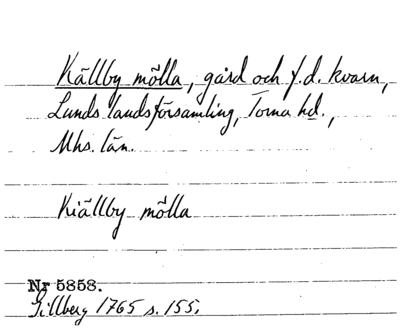 Källby mölla, gård och f.d. kvarn,
Lunds landsförsamling, Torna hd.,
Mhs. län.
Kiällby mölla
Nr 5858.
Gillberg 1765 s. 155.